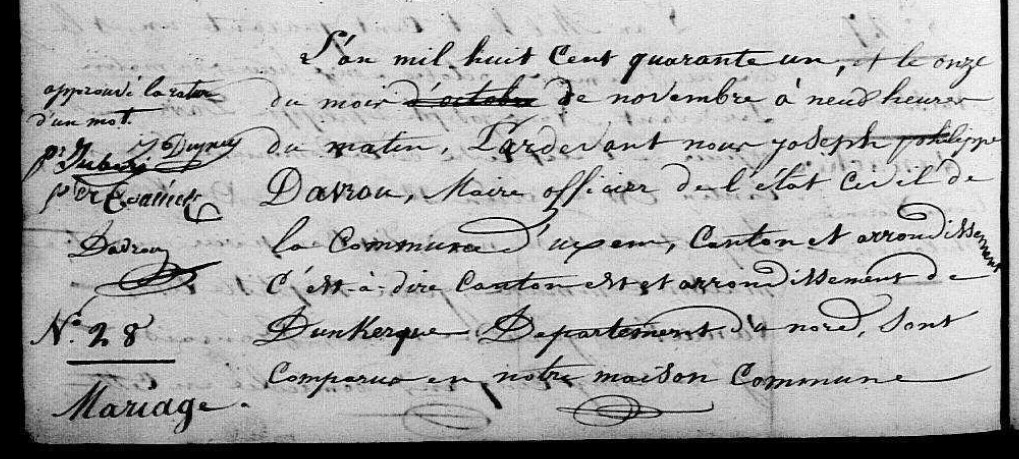 L'an mil huit Cent quarante un, et le onze
du mois d'octobre de novembre à neuf heures
du matin, Pardevant nous joseph philippe
Davrou, Maire officier de l'état Civil de
la Commune d'uxem, Canton et arrondissement
C'est-à-dire Canton est et arrondissement de
Dunkerque Departement du nord, sont
Comparus en notre maison Commune
approuvé la rature
d'un mot.
Davrou
N.° 28
Mariage.